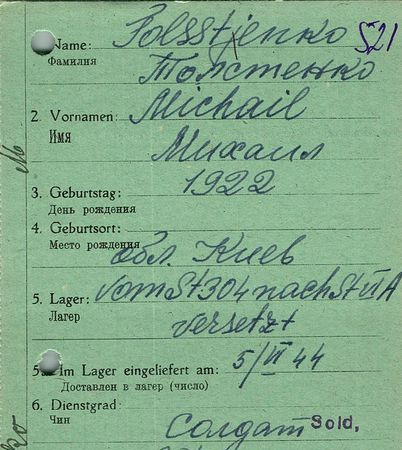 Name: Tolsstjenko 521
Фамилия Толстенко
2. Vornamen: Michail
Имя Михаил
3. Geburtstag: 1922
День рождения
4. Geburtsort:
Место рождения обл. Киев
5. Lager: vom St 304 nach St VI A
Лагер versetzt
5a. Im Lager eingeliefert am: 5/VI 44
Доставлен в лагер (число)
6. Dienstgrad:
Чин Солдат Sold.